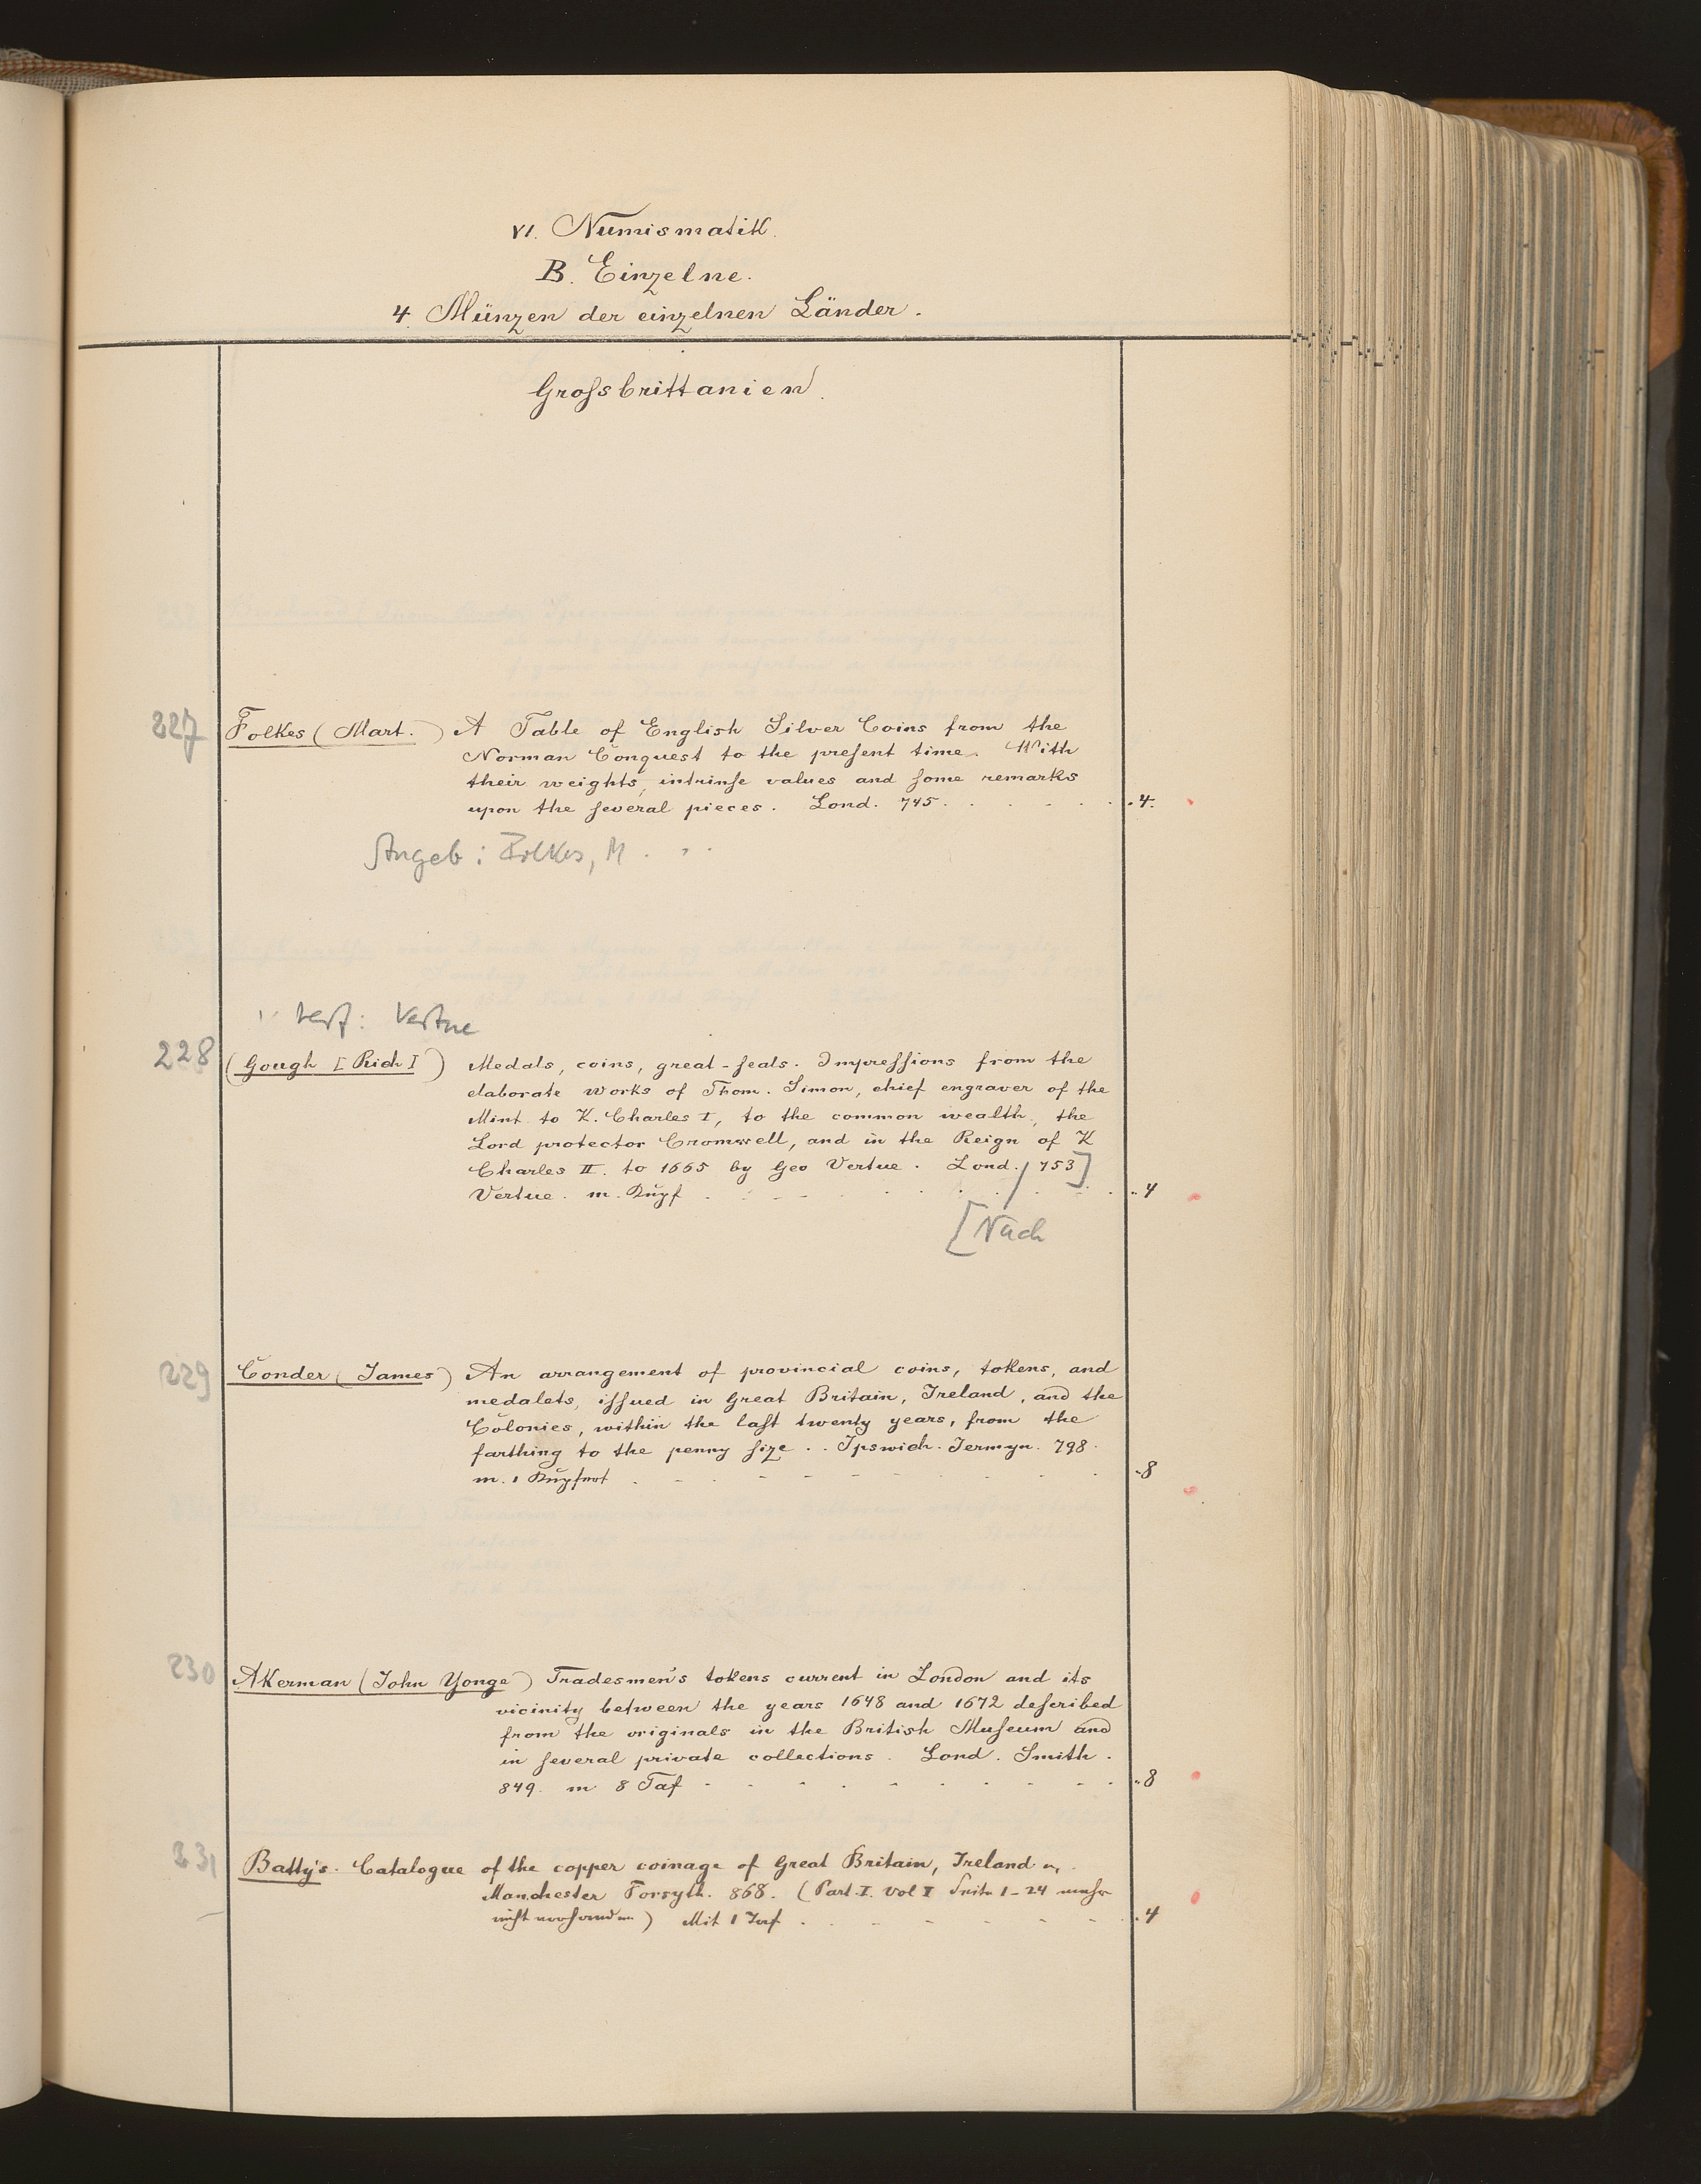 VI. Numismatik.
B. Einzelne.
4. Münzen der einzelnen Länder.
Groſsbrittanien.
227 Folkes (Mart.) A Table of English Silver Coins from the
Norman Conquest to the preſent time. With
their weights, intrinſe values and ſome remarks
upon the ſeveral pieces. Lond. 745. 4.
Angeb: Folkes, M.
Verf: Vertue
228 (Gough [Rich]) Medals, coins, great-ſeals. Impreſſions from the
elaborate works of Thom. Simon, chief engraver of the
Mint to K. Charles I, to the common wealth, the
Lord protector Cromwell, and in the Reign of K
Charles II. to 1665 by Geo Vertue. Lond. 753]
Vertue. m. Kupf 4
[Nach
229 Conder (James) An arrangement of provincial coins, tokens, and
medalets, iſſued in Great Britain, Ireland, and the
Colonies, within the laſt twenty years, from the
farthing to the penny ſize. Ipswich. Jermyn. 798.
m. 1 8
230 Akerman (John Yonge) Tradesmen's tokens current in London and its
vicinity between the years 1648 and 1672 deſcribed
from the originals in the British Muſeum and
in ſeveral private collections. Lond. Smith.
849. m 8 Taf 8
231 Batty's. Catalogue of the copper coinage of Great Britain, Ireland
Manchester Forsyth. 868. (Part. I. Vol I Seite 1-24
nicht vorhanden) Mit 1 Taf 4